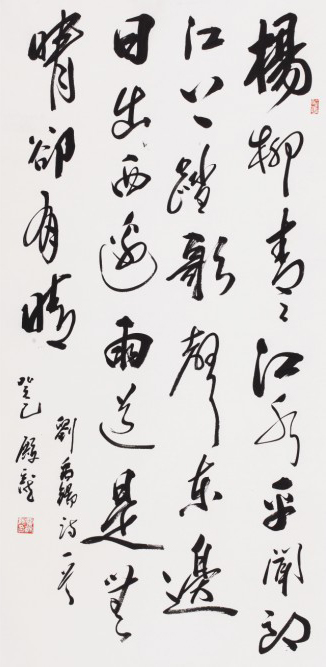 楊柳青〻江水平聞郎
江上踏歌聲東邊
日出西邊雨道是無
晴卻有晴
劉禹錫詩一首
癸巳